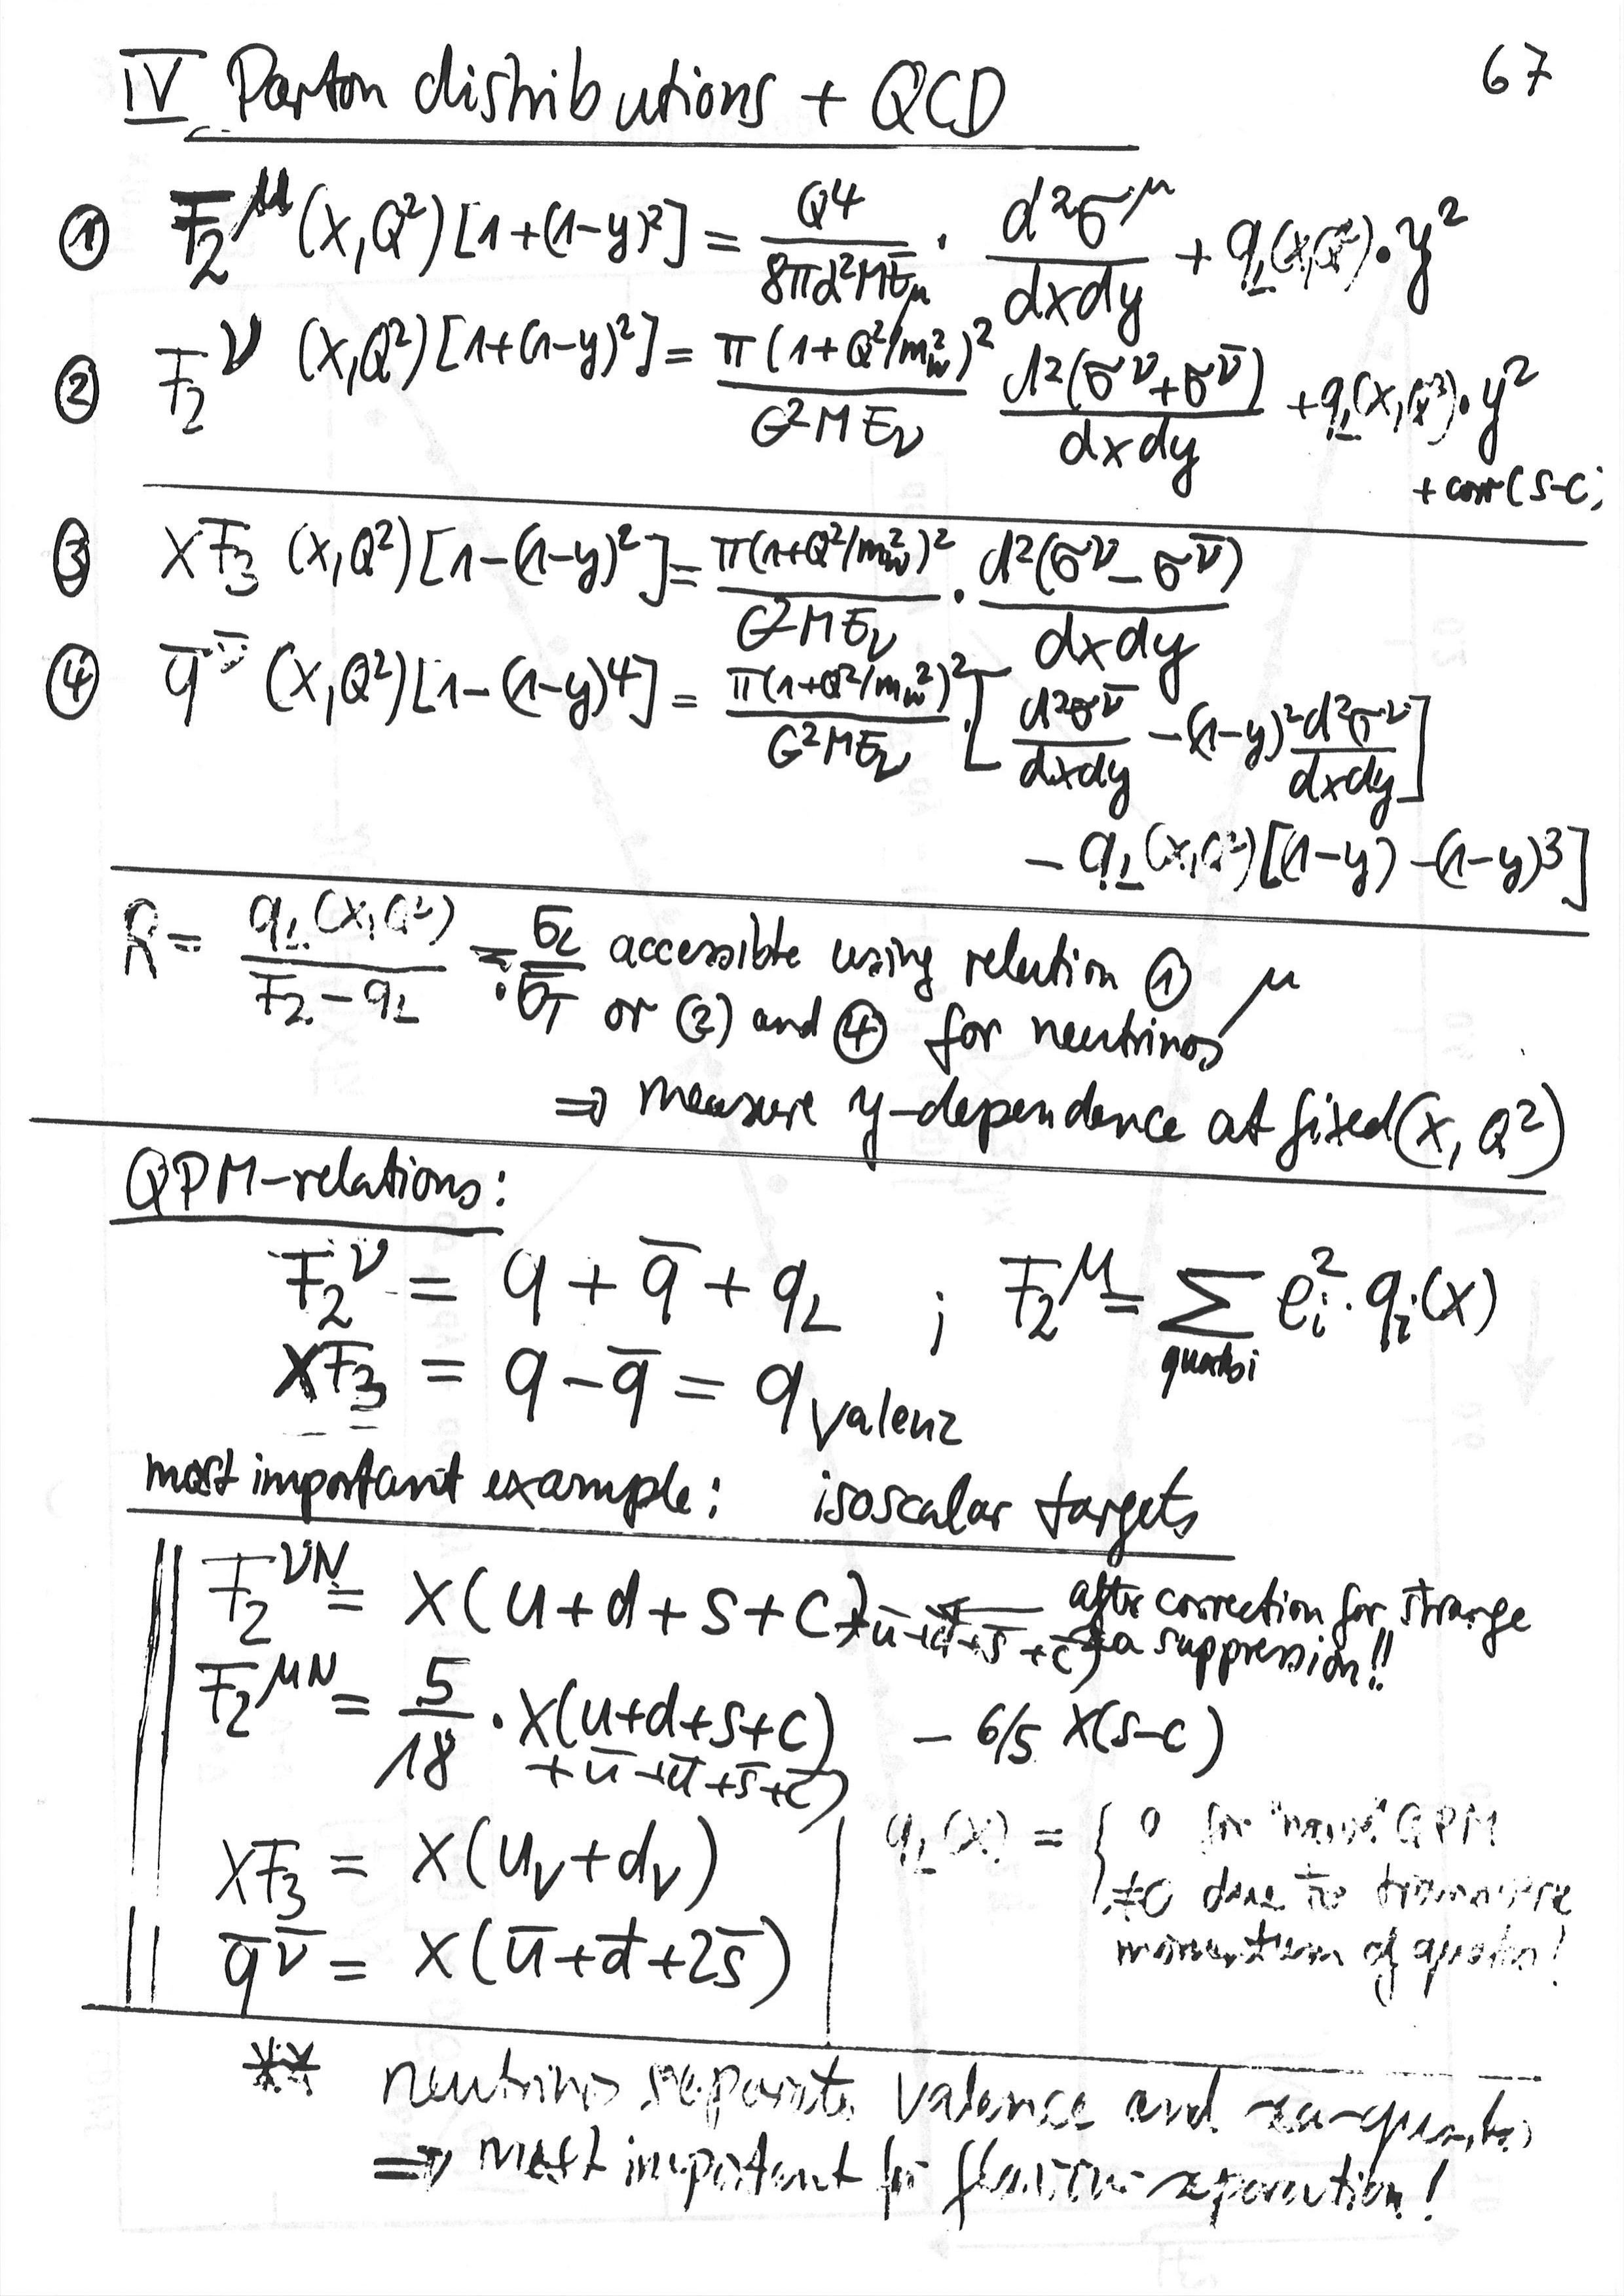 67
IV Parton distributions + QCD
① F₂^μ (x,Q²) [1+(1-y)²] = Q⁴/(8πα²ME_μ) · d²σ^μ/dxdy + q_L(x,Q²)·y²
② F₂^ν (x,Q²) [1+(1-y)²] = π(1+Q²/m_w²)²/(G²ME_ν) d²(σ^ν+σ^ν̄)/dxdy + q_L(x,Q²)·y²
+ corr(s-c)
③ xF₃ (x,Q²) [1-(1-y)²] = π(1+Q²/m_w²)²/(G²ME_ν) · d²(σ^ν-σ^ν̄)/dxdy
④ q̄^ν̄ (x,Q²) [1-(1-y)⁴] = π(1+Q²/m_w²)²/(G²ME_ν) · [d²σ^ν̄/dxdy - (1-y)² d²σ^ν/dxdy]
- q_L(x,Q²) [(1-y) - (1-y)³]
R = q_L(x,Q²)/(F₂-q_L) = σ_L/σ_T accessible using relation ① μ
or (2) and ④ for neutrinos
⇒ measure y-dependence at fixed (x, Q²)
QPM-relations:
F₂^ν = q + q̄ + q_L ; F₂^μ = Σ e_i² · q_i(x)
quarks i
xF₃ = q - q̄ = q_valenz
most important example: isoscalar targets
F₂^νN = x(u+d+s+c + ū+d̄+s̄+c̄) ← after correction for strange
sea suppression!!
F₂^μN = 5/18 · x(u+d+s+c - 6/5 x(s-c)
+ū+d̄+s̄+c̄)
xF₃ = x(u_v+d_v)
q̄^ν̄ = x(ū+d̄+2s̄)
q_L(x) = { 0 for "naive" QPM
≠0 due to transverse
momentum of quarks!
** neutrinos separate valence and sea-quarks
⇒ most important for flavour separation!